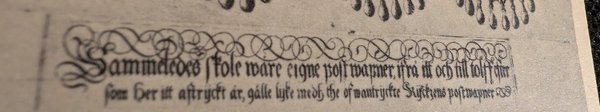 Sammeledes skole ware eigne post wapner, ifrå itt och till tolff öhr
som Her itt aftryckt är, gälle lyke medh the of wantryckte Rÿsckens postwapner